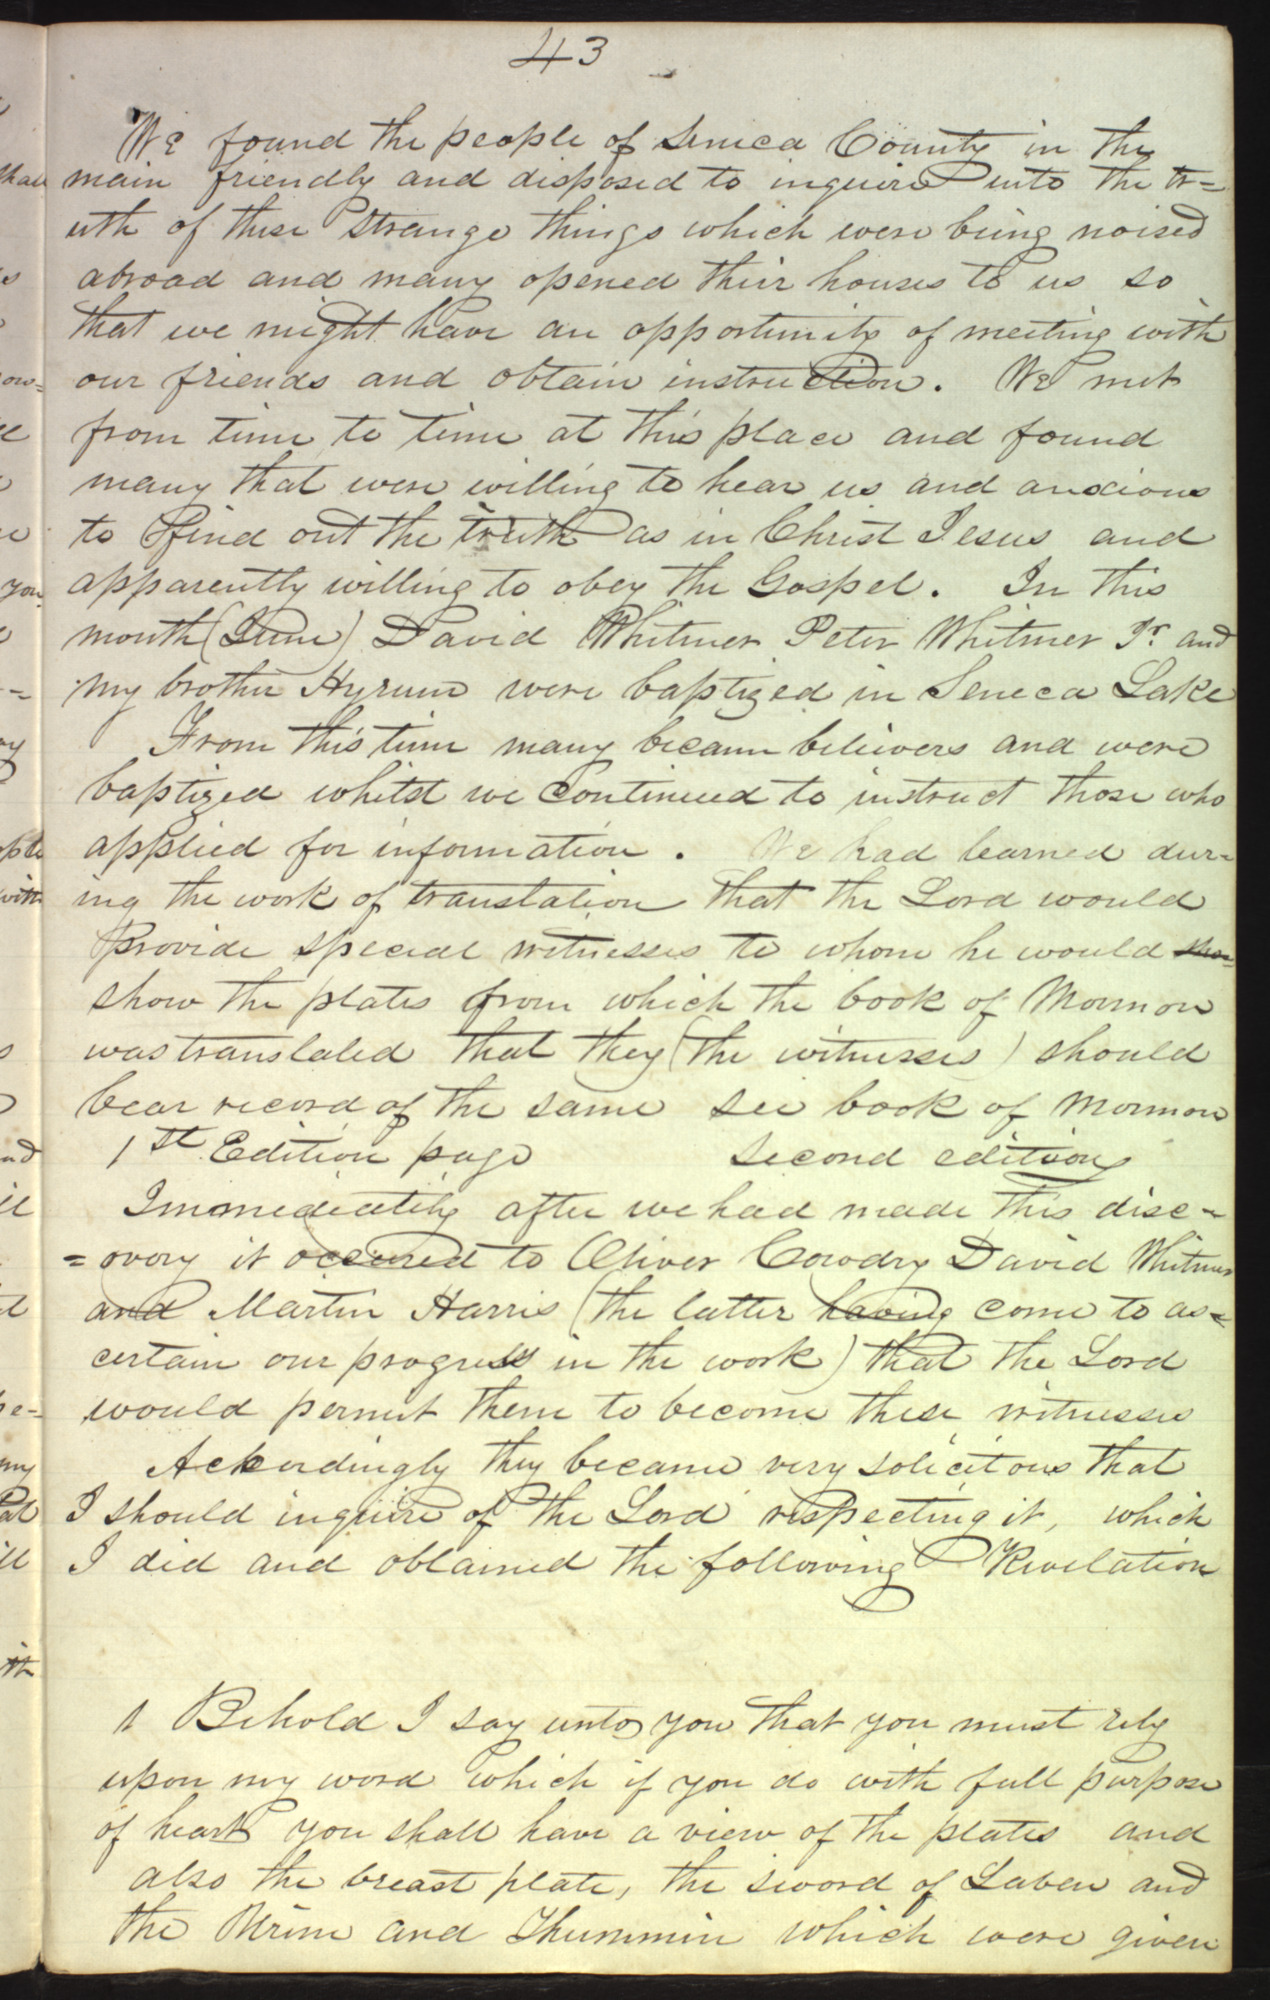 43
We found the people of Seneca County in the
main friendly and disposed to inquire into the tr=
uth of these strange things which were being noised
abroad and many opened their houses to us so
that we might have an opportunity of meeting with
our friends and obtain instruction. We met
from time to time at this place and found
many that were willing to hear us and anxious
to find out the truth as in Christ Jesus and
apparently willing to obey the Gospel. In this
month (June) David Whitmer Peter Whitmer Jr. and
my brother Hyrum were baptized in Seneca Lake
From this time many became believers and were
baptized whilst we continued to instruct those who
applied for information. We had learned dur-
ing the work of translation that the Lord would
provide special witnesses to whom he would
show the plates from which the book of Mormon
was translated that they (the witnesses) should
bear record of the same see book of Mormon
1st Edition page second edition
Immediately after we had made this disc-
=overy it occured to Oliver Cowdry David Whitmer
and Martin Harris (the latter having come to as=
certain our progress in the work) that the Lord
would permit them to become these witnesses
Ackordingly they became very solicitous that
I should inquire of the Lord respecting it, which
I did and obtained the following Revelation
1 Behold I say unto you that you must rely
upon my word which if you do with full purpose
of heart you shall have a view of the plates and
also the breast plate, the sword of Laban and
the Urim and Thummin which were given
shall
you
with